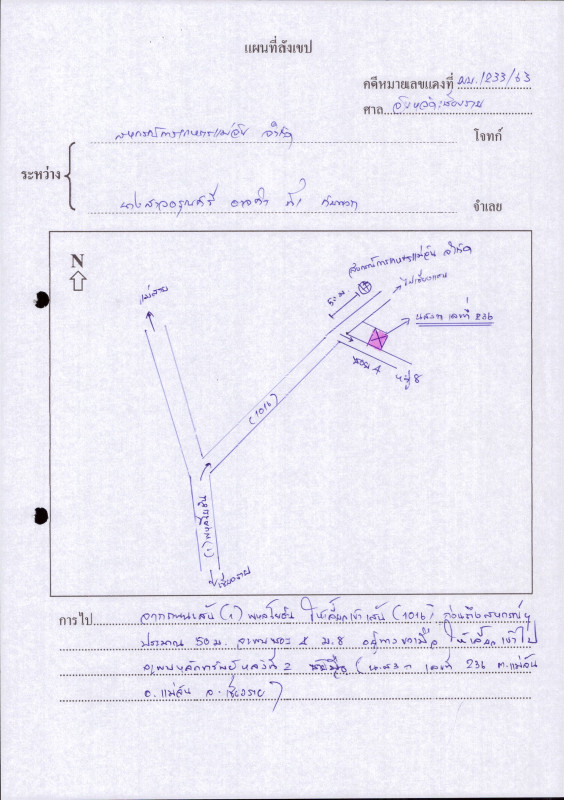 แผนที่สังเขป
คดีหมายเลขแดงที่ ผบ.1233/63
ศาล จังหวัดเชียงราย
สหกรณ์การเกษตรแม่จัน จำกัด โจทก์
ระหว่าง
นางสาวอรุณศรี จำเลย
N
สหกรณ์การเกษตรแม่จัน จำกัด
ไปเชียงแสน
50 ม.
แม่สาย
น.ส.3 ก เลขที่ 236
ซอย 4
หมู่ 8
(1016)
(1) พหลโยธิน
เชียงราย
การไป จากถนนเส้น (1) พหลโยธิน ให้เลี้ยวเข้าเส้น (1016) ก่อนถึงสหกรณ์ฯ
ประมาณ 50 ม. จะพบซอย 4 ม.8 อยู่ทางขวามือ ให้เลี้ยวเข้าไป
จะพบหลักทรัพย์หลังที่ 2 (น.ส.3 ก เลขที่ 236 ต.แม่จัน
อ.แม่จัน จ.เชียงราย)